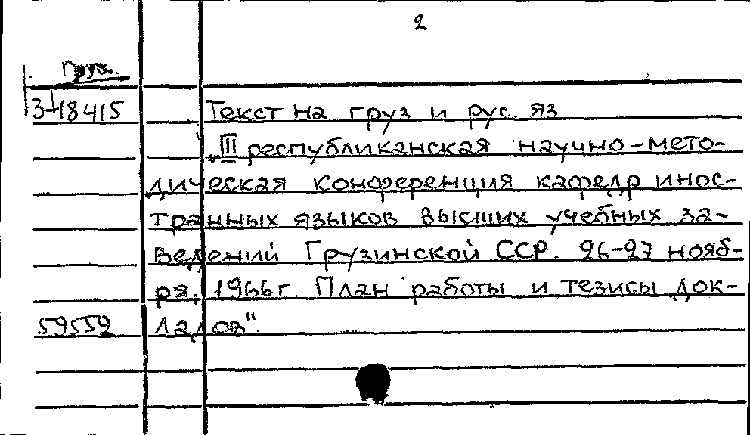 2
Груз.
3-18415 Текст на груз и рус. яз
„III республиканская научно-мето-
дическая конференция кафедр инос-
транных языков высших учебных за-
ведений Грузинской ССР. 26-27 нояб-
ря, 1966г План работы и тезисы док-
59559 ладов".